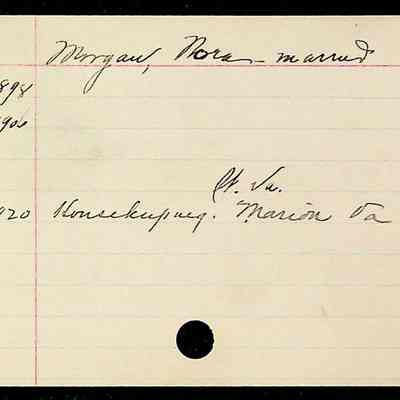 Morgan, Nora - married
898
906
920 Housekeeping. Marion Va